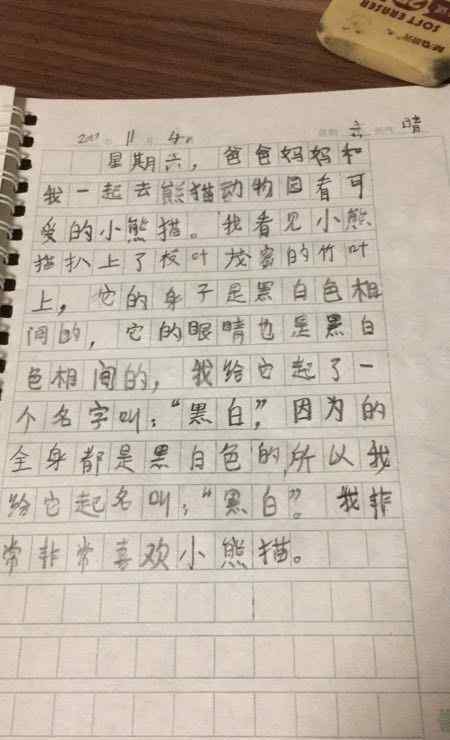 SOFT ERASER
2017年 11月 4日 星期 六 天气 晴
星期六，爸爸妈妈和
我一起去熊猫动物园看可
爱的小熊猫。我看见小熊
猫扒上了枝叶茂密的竹叶
上，它的身子是黑白色相
间的，它的眼睛也是黑白
色相间的，我给它起了一
个名字叫：“黑白”，因为的
全身都是黑白色的，所以我
给它起名叫：“黑白”。我非
常非常喜欢小熊猫。